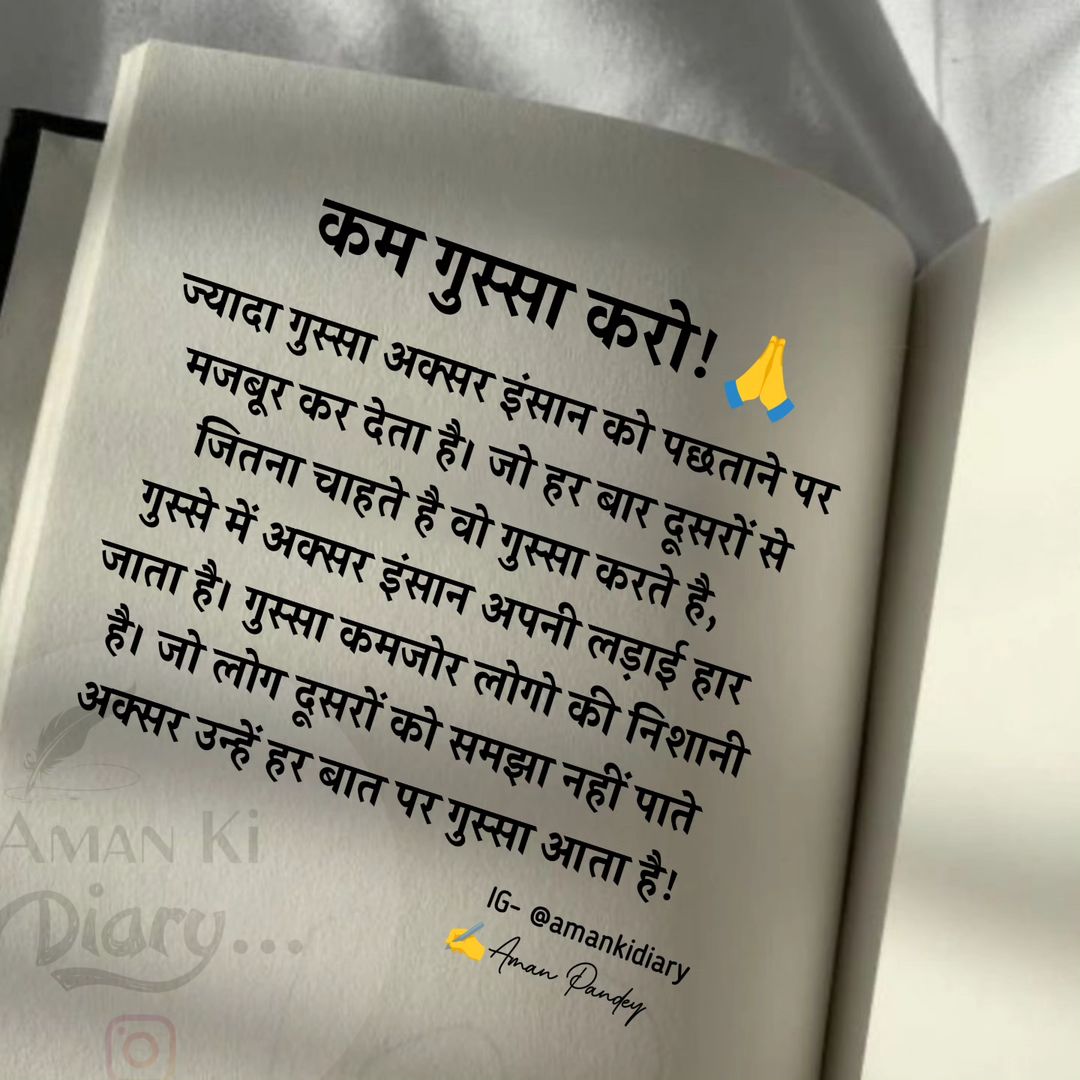 कम गुस्सा करो! 🙏
ज्यादा गुस्सा अक्सर इंसान को पछताने पर
मजबूर कर देता है। जो हर बार दूसरों से
जितना चाहते है वो गुस्सा करते है,
गुस्से में अक्सर इंसान अपनी लड़ाई हार
जाता है। गुस्सा कमजोर लोगो की निशानी
है। जो लोग दूसरों को समझा नहीं पाते
अक्सर उन्हें हर बात पर गुस्सा आता है!
IG- @amankidiary
✍️ Aman Pandey
AMAN Ki
Diary...